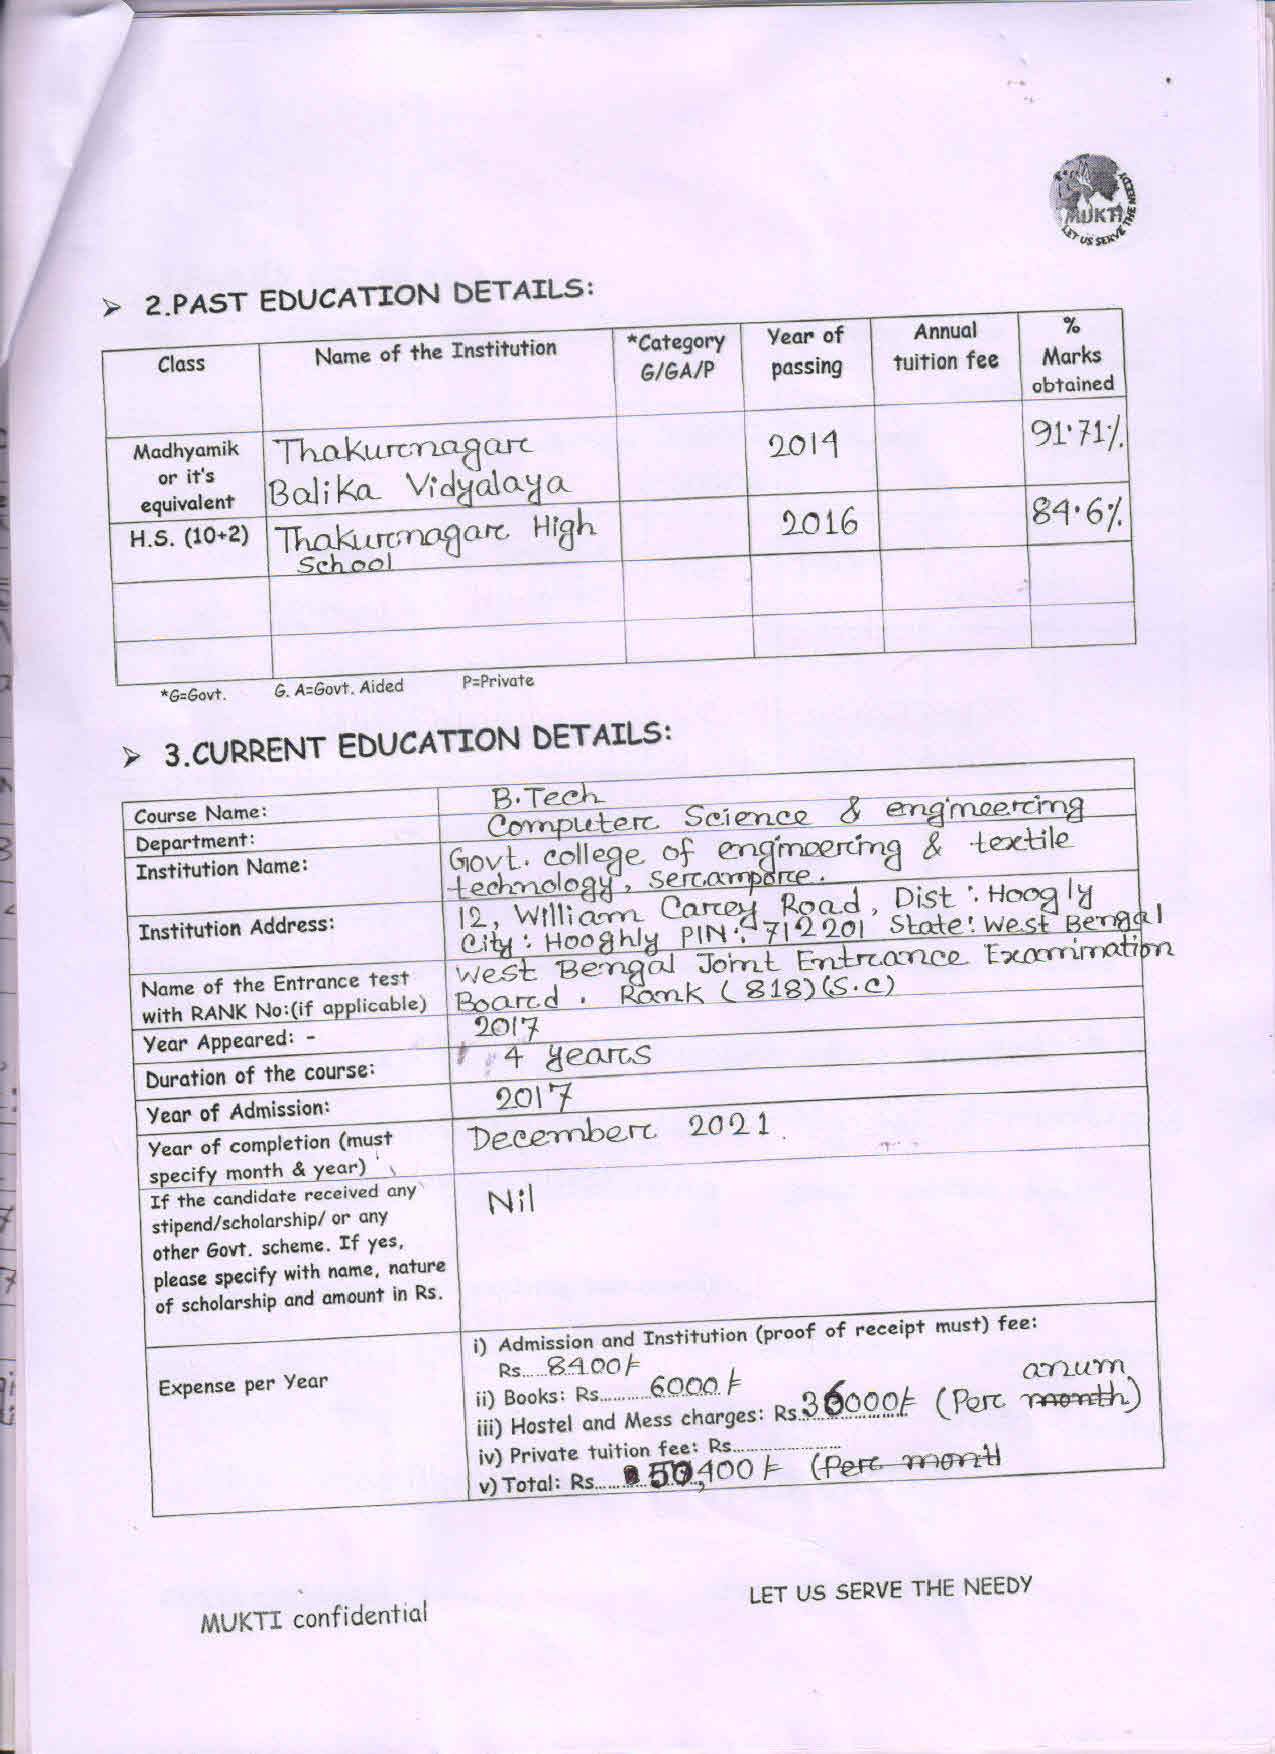 MUKTI
LET US SERVE THE NEEDY
➤ 2.PAST EDUCATION DETAILS:
Class Name of the Institution *Category G/GA/P Year of passing Annual tuition fee % Marks obtained
Madhyamik or it's equivalent Thakurnagar Balika Vidyalaya 2014 91.71%
H.S. (10+2) Thakurnagar High School 2016 84.6%
*G=Govt. G. A=Govt. Aided P=Private
➤ 3.CURRENT EDUCATION DETAILS:
Course Name: B.Tech
Department: Computer Science & engineering
Institution Name: Govt. college of engineering & textile
technology, Serampore.
Institution Address: 12, William Carey Road, Dist : Hoogly
City : Hooghly PIN : 712201 State : West Bengal
Name of the Entrance test West Bengal Joint Entrance Examination
with RANK No:(if applicable) Board . Rank (818)(S.C)
Year Appeared: - 2017
Duration of the course: 4 years
Year of Admission: 2017
Year of completion (must December 2021
specify month & year)
If the candidate received any Nil
stipend/scholarship/ or any
other Govt. scheme. If yes,
please specify with name, nature
of scholarship and amount in Rs.
Expense per Year
i) Admission and Institution (proof of receipt must) fee:
Rs......8400/-
ii) Books: Rs............6000/-
anum
iii) Hostel and Mess charges: Rs.36000/- (Per month)
iv) Private tuition fee: Rs........................
v) Total: Rs........50,400/- (Per month
MUKTI confidential LET US SERVE THE NEEDY